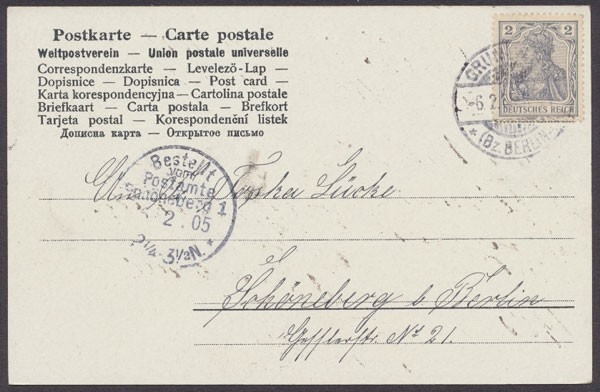 Postkarte — Carte postale
Weltpostverein — Union postale universelle
Correspondenzkarte — Levelező-Lap —
Dopisnice — Dopisnica — Post card —
Karta korespondencyjna — Cartolina postale
Briefkaart — Carta postala — Brefkort
Tarjeta postal — Korespondenční listek
Дописна карта — Открытое письмо
2 2
DEUTSCHES REICH
(Bz. BERLIN
Bestellt
vom
Postamte
1
2 . 05
2¼-3½N.
Lücke
Schöneberg b. Berlin
No 21.